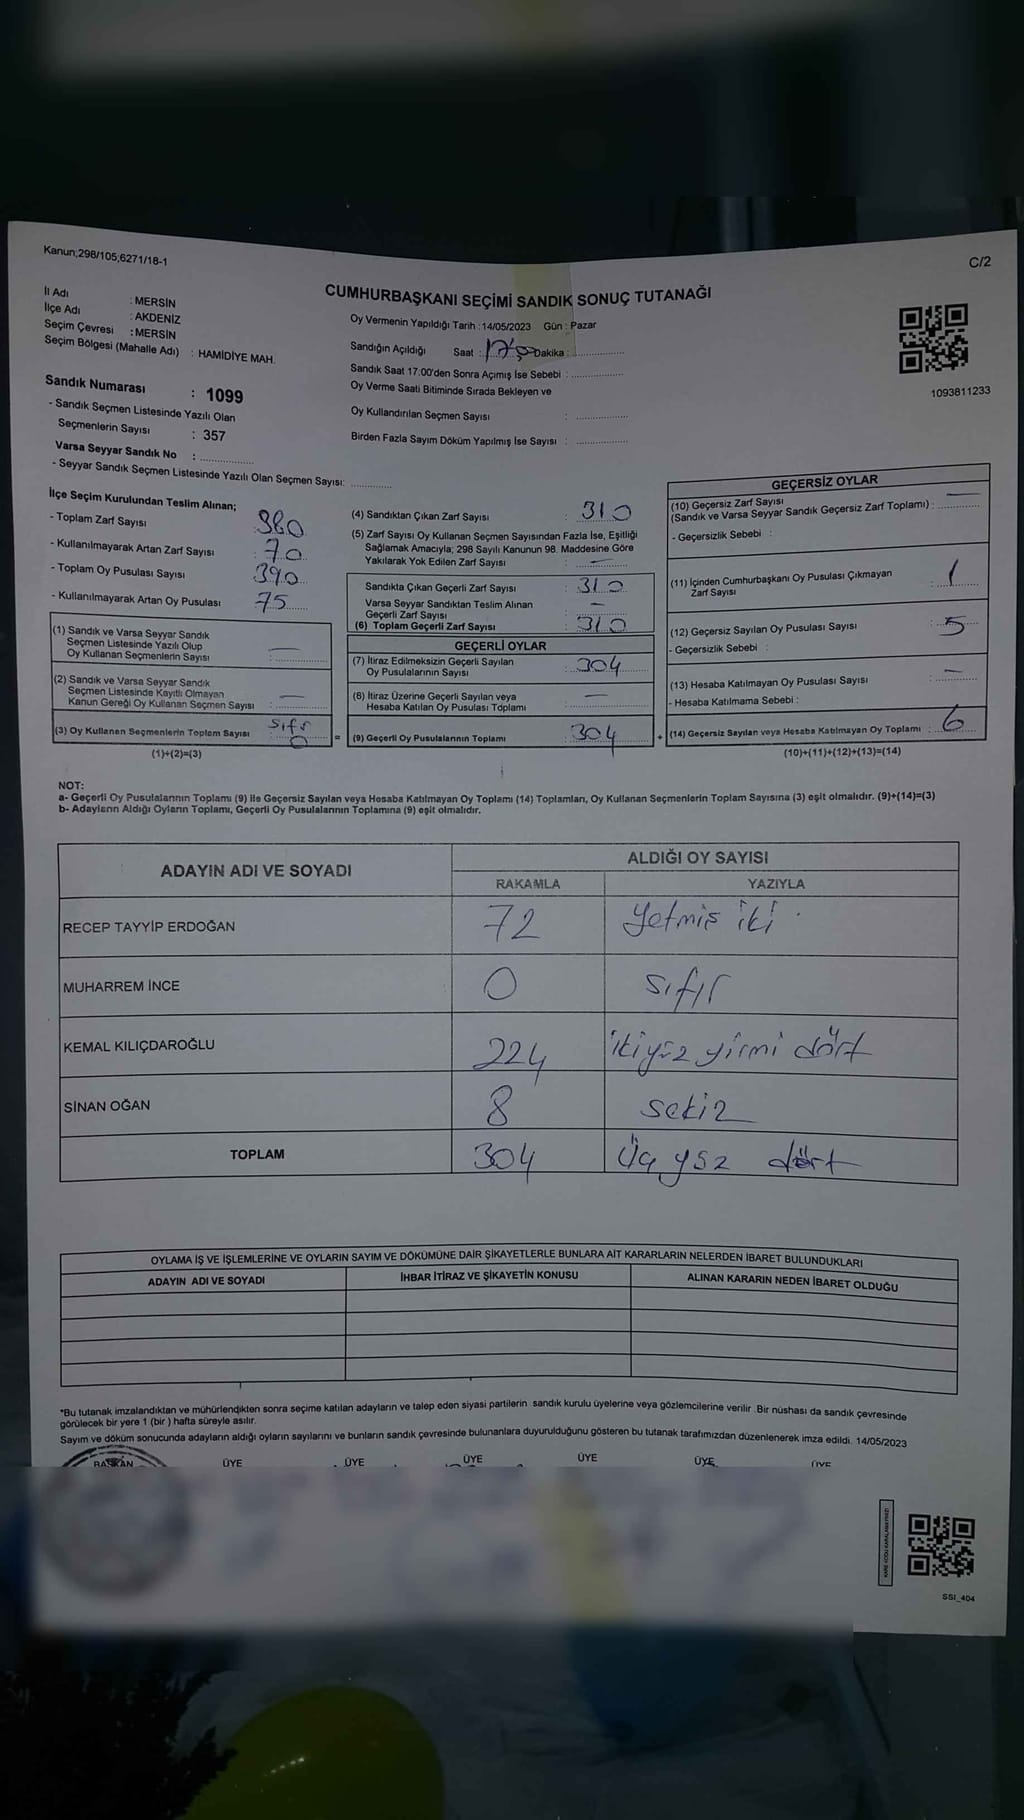 Kanun;298/105;6271/18-1
C/2
CUMHURBAŞKANI SEÇİMİ SANDIK SONUÇ TUTANAĞI
İl Adı : MERSİN
İlçe Adı : AKDENİZ
Seçim Çevresi : MERSİN
Seçim Bölgesi (Mahalle Adı) : HAMİDİYE MAH.
Sandık Numarası : 1099
- Sandık Seçmen Listesinde Yazılı Olan
Seçmenlerin Sayısı : 357
Varsa Seyyar Sandık No :
- Seyyar Sandık Seçmen Listesinde Yazılı Olan Seçmen Sayısı:
Oy Vermenin Yapıldığı Tarih : 14/05/2023 Gün : Pazar
Sandığın Açıldığı Saat : 17 Dakika :
Sandık Saat 17:00'den Sonra Açımış İse Sebebi :
Oy Verme Saati Bitiminde Sırada Bekleyen ve
Oy Kullandırılan Seçmen Sayısı :
Birden Fazla Sayım Döküm Yapılmış İse Sayısı :
1093811233
İlçe Seçim Kurulundan Teslim Alınan;
- Toplam Zarf Sayısı 380
- Kullanılmayarak Artan Zarf Sayısı 70
- Toplam Oy Pusulası Sayısı 390
- Kullanılmayarak Artan Oy Pusulası 75
(1) Sandık ve Varsa Seyyar Sandık
Seçmen Listesinde Yazılı Olup
Oy Kullanan Seçmenlerin Sayısı : —
(2) Sandık ve Varsa Seyyar Sandık
Seçmen Listesinde Kayıtlı Olmayan
Kanun Gereği Oy Kullanan Seçmen Sayısı : —
(3) Oy Kullanan Seçmenlerin Toplam Sayısı : sıfır 0
(1)+(2)=(3)
(4) Sandıktan Çıkan Zarf Sayısı : 310
(5) Zarf Sayısı Oy Kullanan Seçmen Sayısından Fazla İse, Eşitliği
Sağlamak Amacıyla; 298 Sayılı Kanunun 98. Maddesine Göre
Yakılarak Yok Edilen Zarf Sayısı : —
Sandıkta Çıkan Geçerli Zarf Sayısı : 310
Varsa Seyyar Sandıktan Teslim Alınan
Geçerli Zarf Sayısı : —
(6) Toplam Geçerli Zarf Sayısı : 310
GEÇERLİ OYLAR
(7) İtiraz Edilmeksizin Geçerli Sayılan
Oy Pusulalarının Sayısı : 304
(8) İtiraz Üzerine Geçerli Sayılan veya
Hesaba Katılan Oy Pusulası Toplamı : —
= (9) Geçerli Oy Pusulalarının Toplamı : 304
GEÇERSİZ OYLAR
(10) Geçersiz Zarf Sayısı
(Sandık ve Varsa Seyyar Sandık Geçersiz Zarf Toplamı) : —
- Geçersizlik Sebebi :
(11) İçinden Cumhurbaşkanı Oy Pusulası Çıkmayan
Zarf Sayısı : 1
(12) Geçersiz Sayılan Oy Pusulası Sayısı : 5
- Geçersizlik Sebebi :
(13) Hesaba Katılmayan Oy Pusulası Sayısı : —
- Hesaba Katılmama Sebebi :
+ (14) Geçersiz Sayılan veya Hesaba Katılmayan Oy Toplamı : 6
(10)+(11)+(12)+(13)=(14)
NOT:
a- Geçerli Oy Pusulalarının Toplamı (9) ile Geçersiz Sayılan veya Hesaba Katılmayan Oy Toplamı (14) Toplamları, Oy Kullanan Seçmenlerin Toplam Sayısına (3) eşit olmalıdır. (9)+(14)=(3)
b- Adayların Aldığı Oyların Toplamı, Geçerli Oy Pusulalarının Toplamına (9) eşit olmalıdır.
ADAYIN ADI VE SOYADI
ALDIĞI OY SAYISI
RAKAMLA YAZIYLA
RECEP TAYYİP ERDOĞAN 72 Yetmiş iki
MUHARREM İNCE 0 sıfır
KEMAL KILIÇDAROĞLU 224 ikiyüz yirmi dört
SİNAN OĞAN 8 sekiz
TOPLAM 304 Üç yüz dört
OYLAMA İŞ VE İŞLEMLERİNE VE OYLARIN SAYIM VE DÖKÜMÜNE DAİR ŞİKAYETLERLE BUNLARA AİT KARARLARIN NELERDEN İBARET BULUNDUKLARI
ADAYIN ADI VE SOYADI İHBAR İTİRAZ VE ŞİKAYETİN KONUSU ALINAN KARARIN NEDEN İBARET OLDUĞU
*Bu tutanak imzalandıktan ve mühürlendikten sonra seçime katılan adayların ve talep eden siyasi partilerin sandık kurulu üyelerine veya gözlemcilerine verilir. Bir nüshası da sandık çevresinde
görülecek bir yere 1 (bir) hafta süreyle asılır.
Sayım ve döküm sonucunda adayların aldığı oyların sayılarını ve bunların sandık çevresinde bulunanlara duyurulduğunu gösteren bu tutanak tarafımızdan düzenlenerek imza edildi. 14/05/2023
BAŞKAN ÜYE ÜYE ÜYE ÜYE ÜYE ÜYE
SSI_404